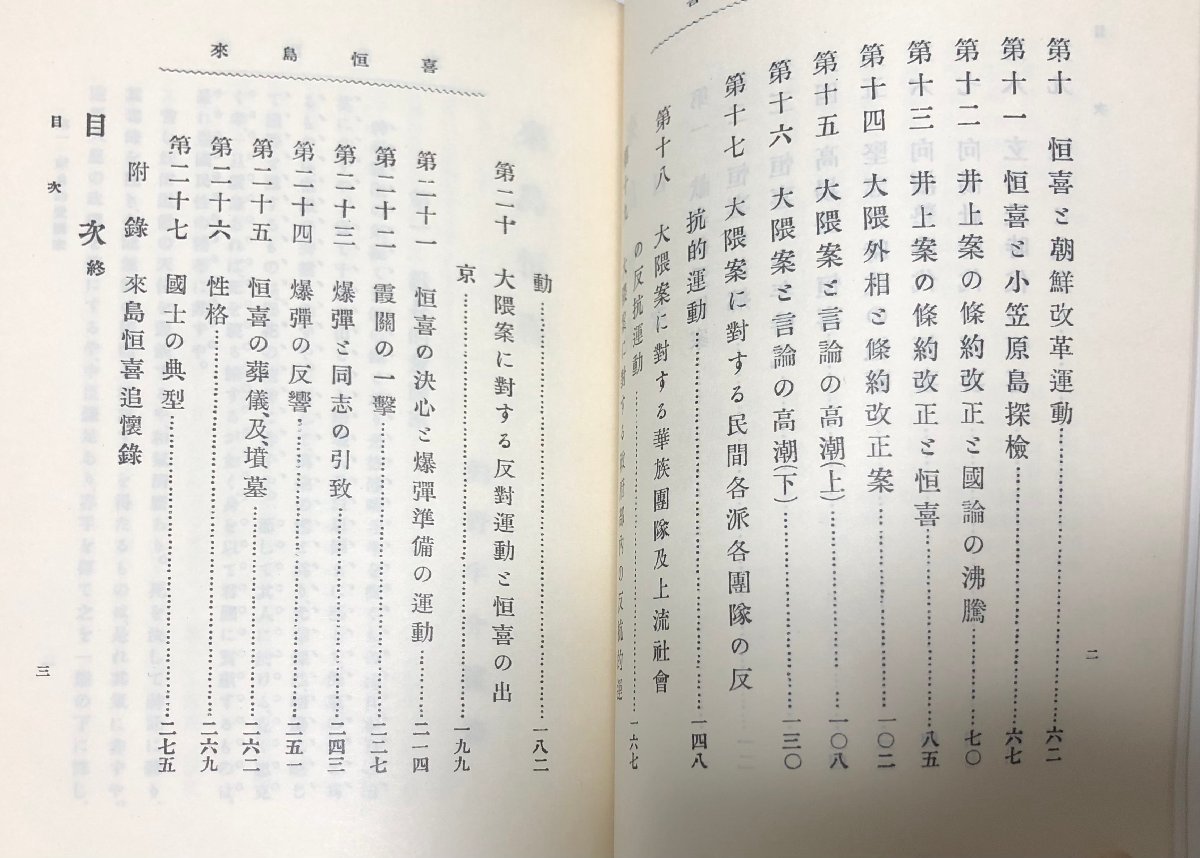 第十 恒喜と朝鮮改革運動……六二
第十一 恒喜と小笠原島探檢……六七
第十二 井上案の條約改正と國論の沸騰……七〇
第十三 井上案の條約改正と恒喜……八五
第十四 大隈外相と條約改正案……一〇二
第十五 大隈案と言論の高潮(上)……一〇八
第十六 大隈案と言論の高潮(下)……一三〇
第十七 大隈案に對する民間各派各團隊の反
抗的運動……一四八
第十八 大隈案に對する華族團隊及上流社會
の反抗運動……一六七
二
來島恒喜
動……一八二
第二十 大隈案に對する反對運動と恒喜の出
京……一九九
第二十一 恒喜の決心と爆彈準備の運動……二一四
第二十二 霞關の一擊……二二七
第二十三 爆彈と同志の引致……二四三
第二十四 爆彈の反響……二五一
第二十五 恒喜の葬儀、及、墳墓……二六二
第二十六 性格……二六九
第二十七 國士の典型……二七五
附錄 來島恒喜追懷錄
目次終
目次
三